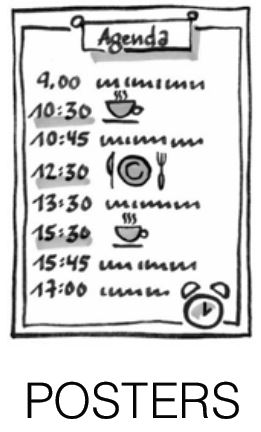 Agenda
9.00
10:30
10:45
12:30
13:30
15:30
15:45
17:00
POSTERS